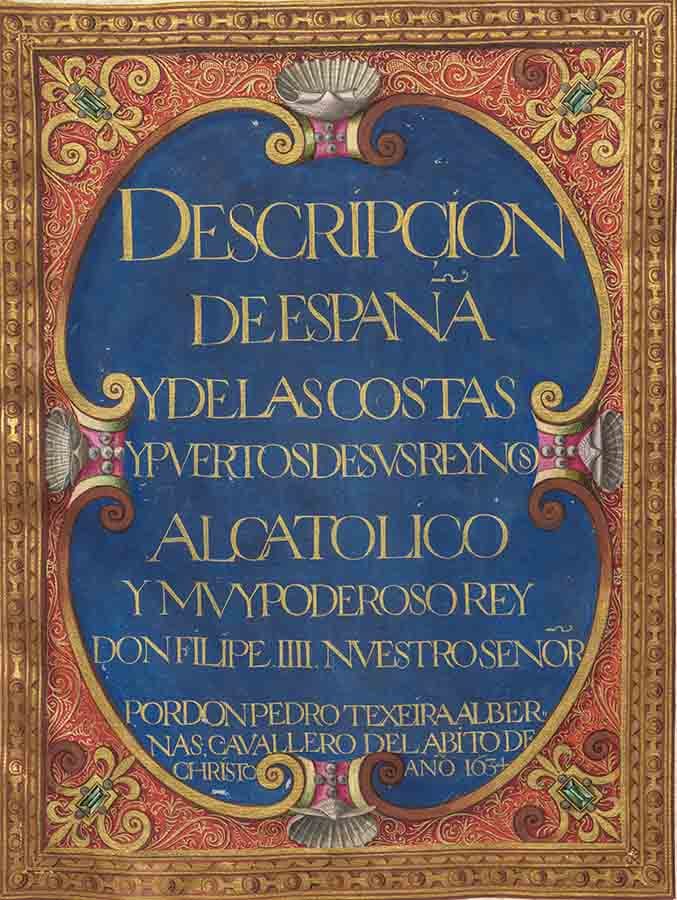 DESCRIPÇION
DE ESPAÑA
Y DE LAS COSTAS
Y PVERTOS DE SVS REYNOS
AL CATOLICO
Y MVY PODEROSO REY
DON FILIPE.IIII. NVESTRO SEÑOR
POR DON PEDRO TEXEIRA ALBER-
NAS, CAVALLERO DEL ABITO DE
CHRISTO AÑO 1634